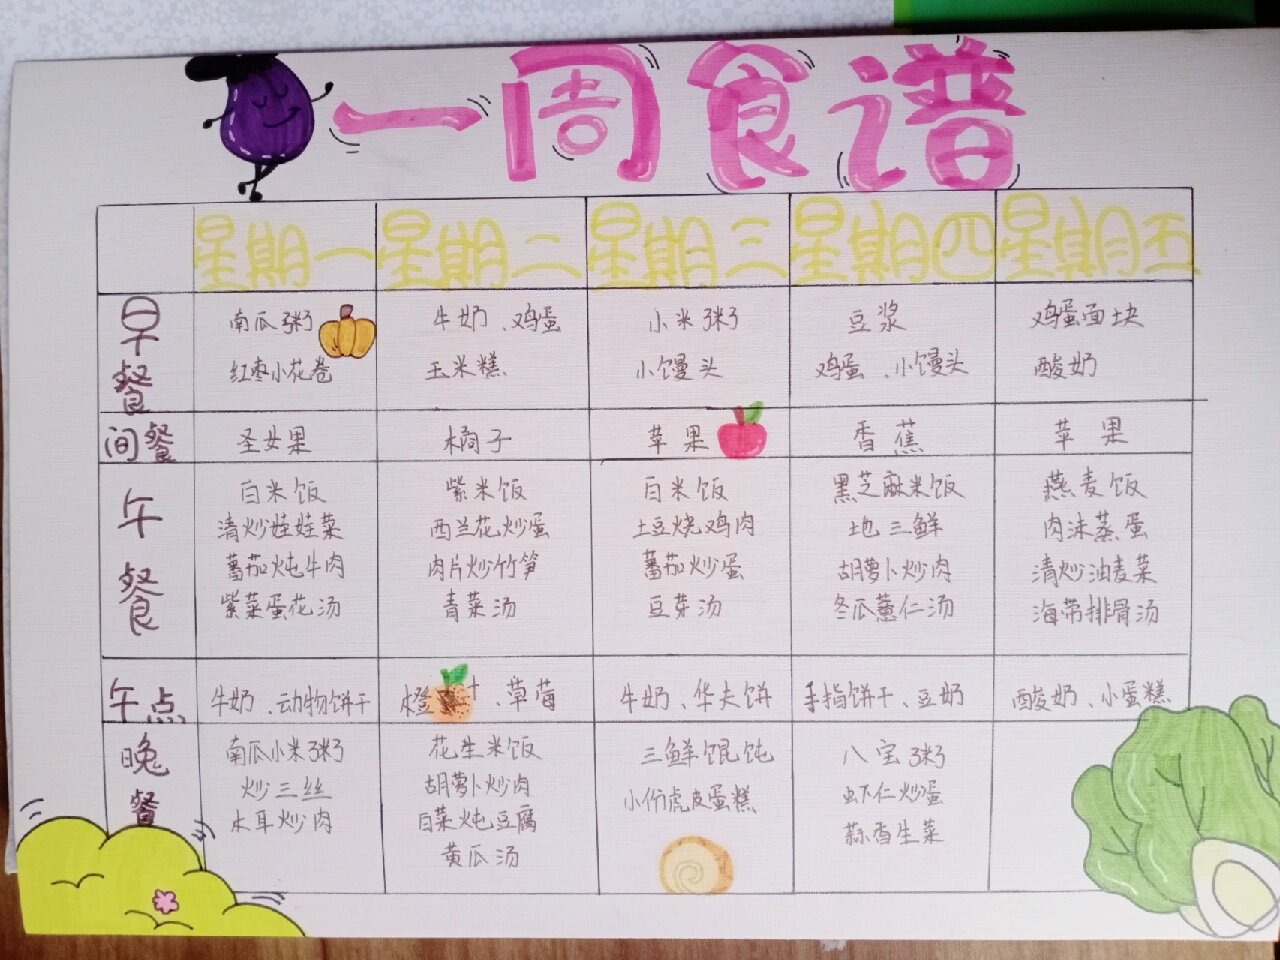 一周食谱
星期一 星期二 星期三 星期四 星期五
早餐
南瓜粥 牛奶、鸡蛋 小米粥 豆浆 鸡蛋面块
红枣小花卷 玉米糕 小馒头 鸡蛋、小馒头 酸奶
间餐 圣女果 橘子 苹果 香蕉 苹果
午餐
白米饭 紫米饭 白米饭 黑芝麻米饭 燕麦饭
清炒娃娃菜 西兰花炒蛋 土豆烧鸡肉 地三鲜 肉沫蒸蛋
蕃茄炖牛肉 肉片炒竹笋 蕃茄炒蛋 胡萝卜炒肉 清炒油麦菜
紫菜蛋花汤 青菜汤 豆芽汤 冬瓜薏仁汤 海带排骨汤
午点 牛奶、动物饼干 橙汁、草莓 牛奶、华夫饼 手指饼干、豆奶 酸奶、小蛋糕
晚餐
南瓜小米粥 花生米饭 三鲜馄饨 八宝粥
炒三丝 胡萝卜炒肉 小份虎皮蛋糕 虾仁炒蛋
木耳炒肉 白菜炖豆腐 蒜香生菜
黄瓜汤